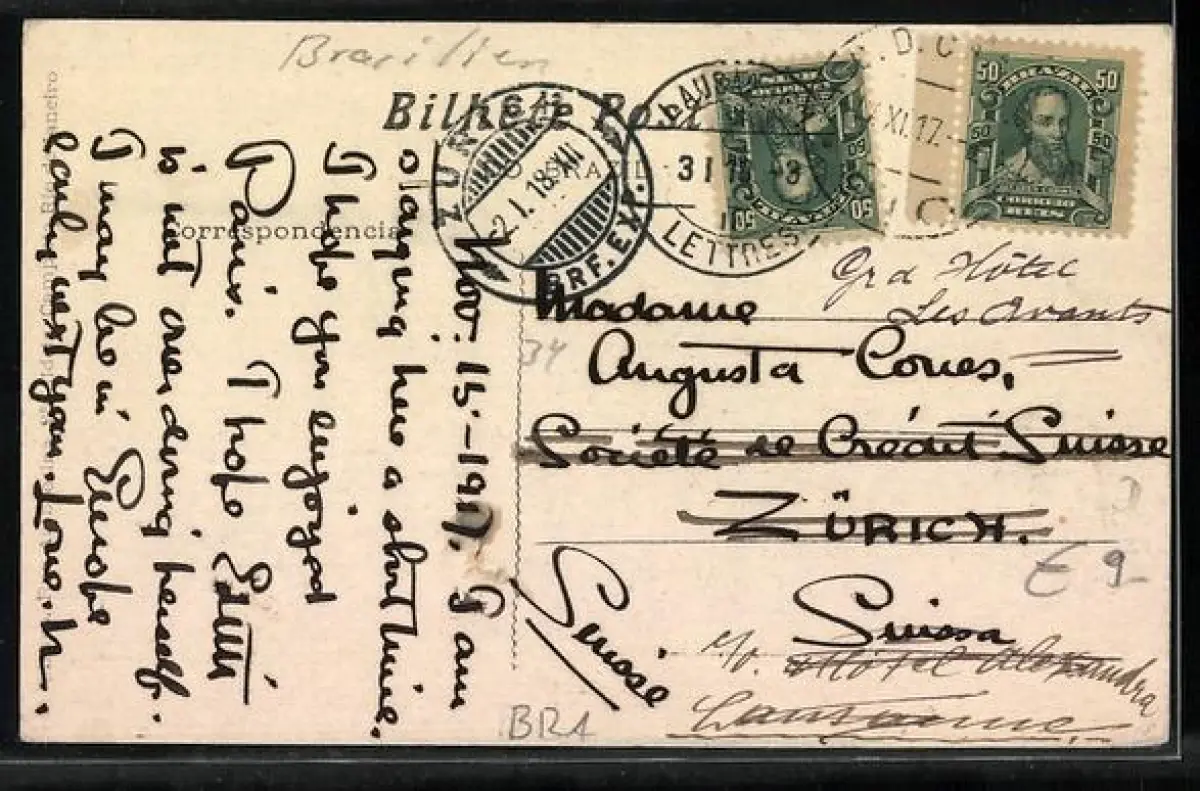 Brasilien
Bilhete Postal
Correspondencia
Rio de Janeiro
Nov: 15-1917. I am
staying here a short time.
I hope you enjoyed
Paris. I hope Edith
is not over doing herself.
I may be in Europe
early next year. Love. H.
ZÜRICH
2.I.18.XII
BRF. EXP.
LAUSANNE
31 -3
LETTRES
XI.17
50 BRAZIL 50
50 50
CORREIO
REIS
50 50
Grd Hôtel
Les Avants
Madame
Augusta Coues,
Société de Crédit Suisse
ZÜRICH.
Suissa
Suisse
c/o. Hôtel Alexandra
Lausanne
34
E 9-
BRA